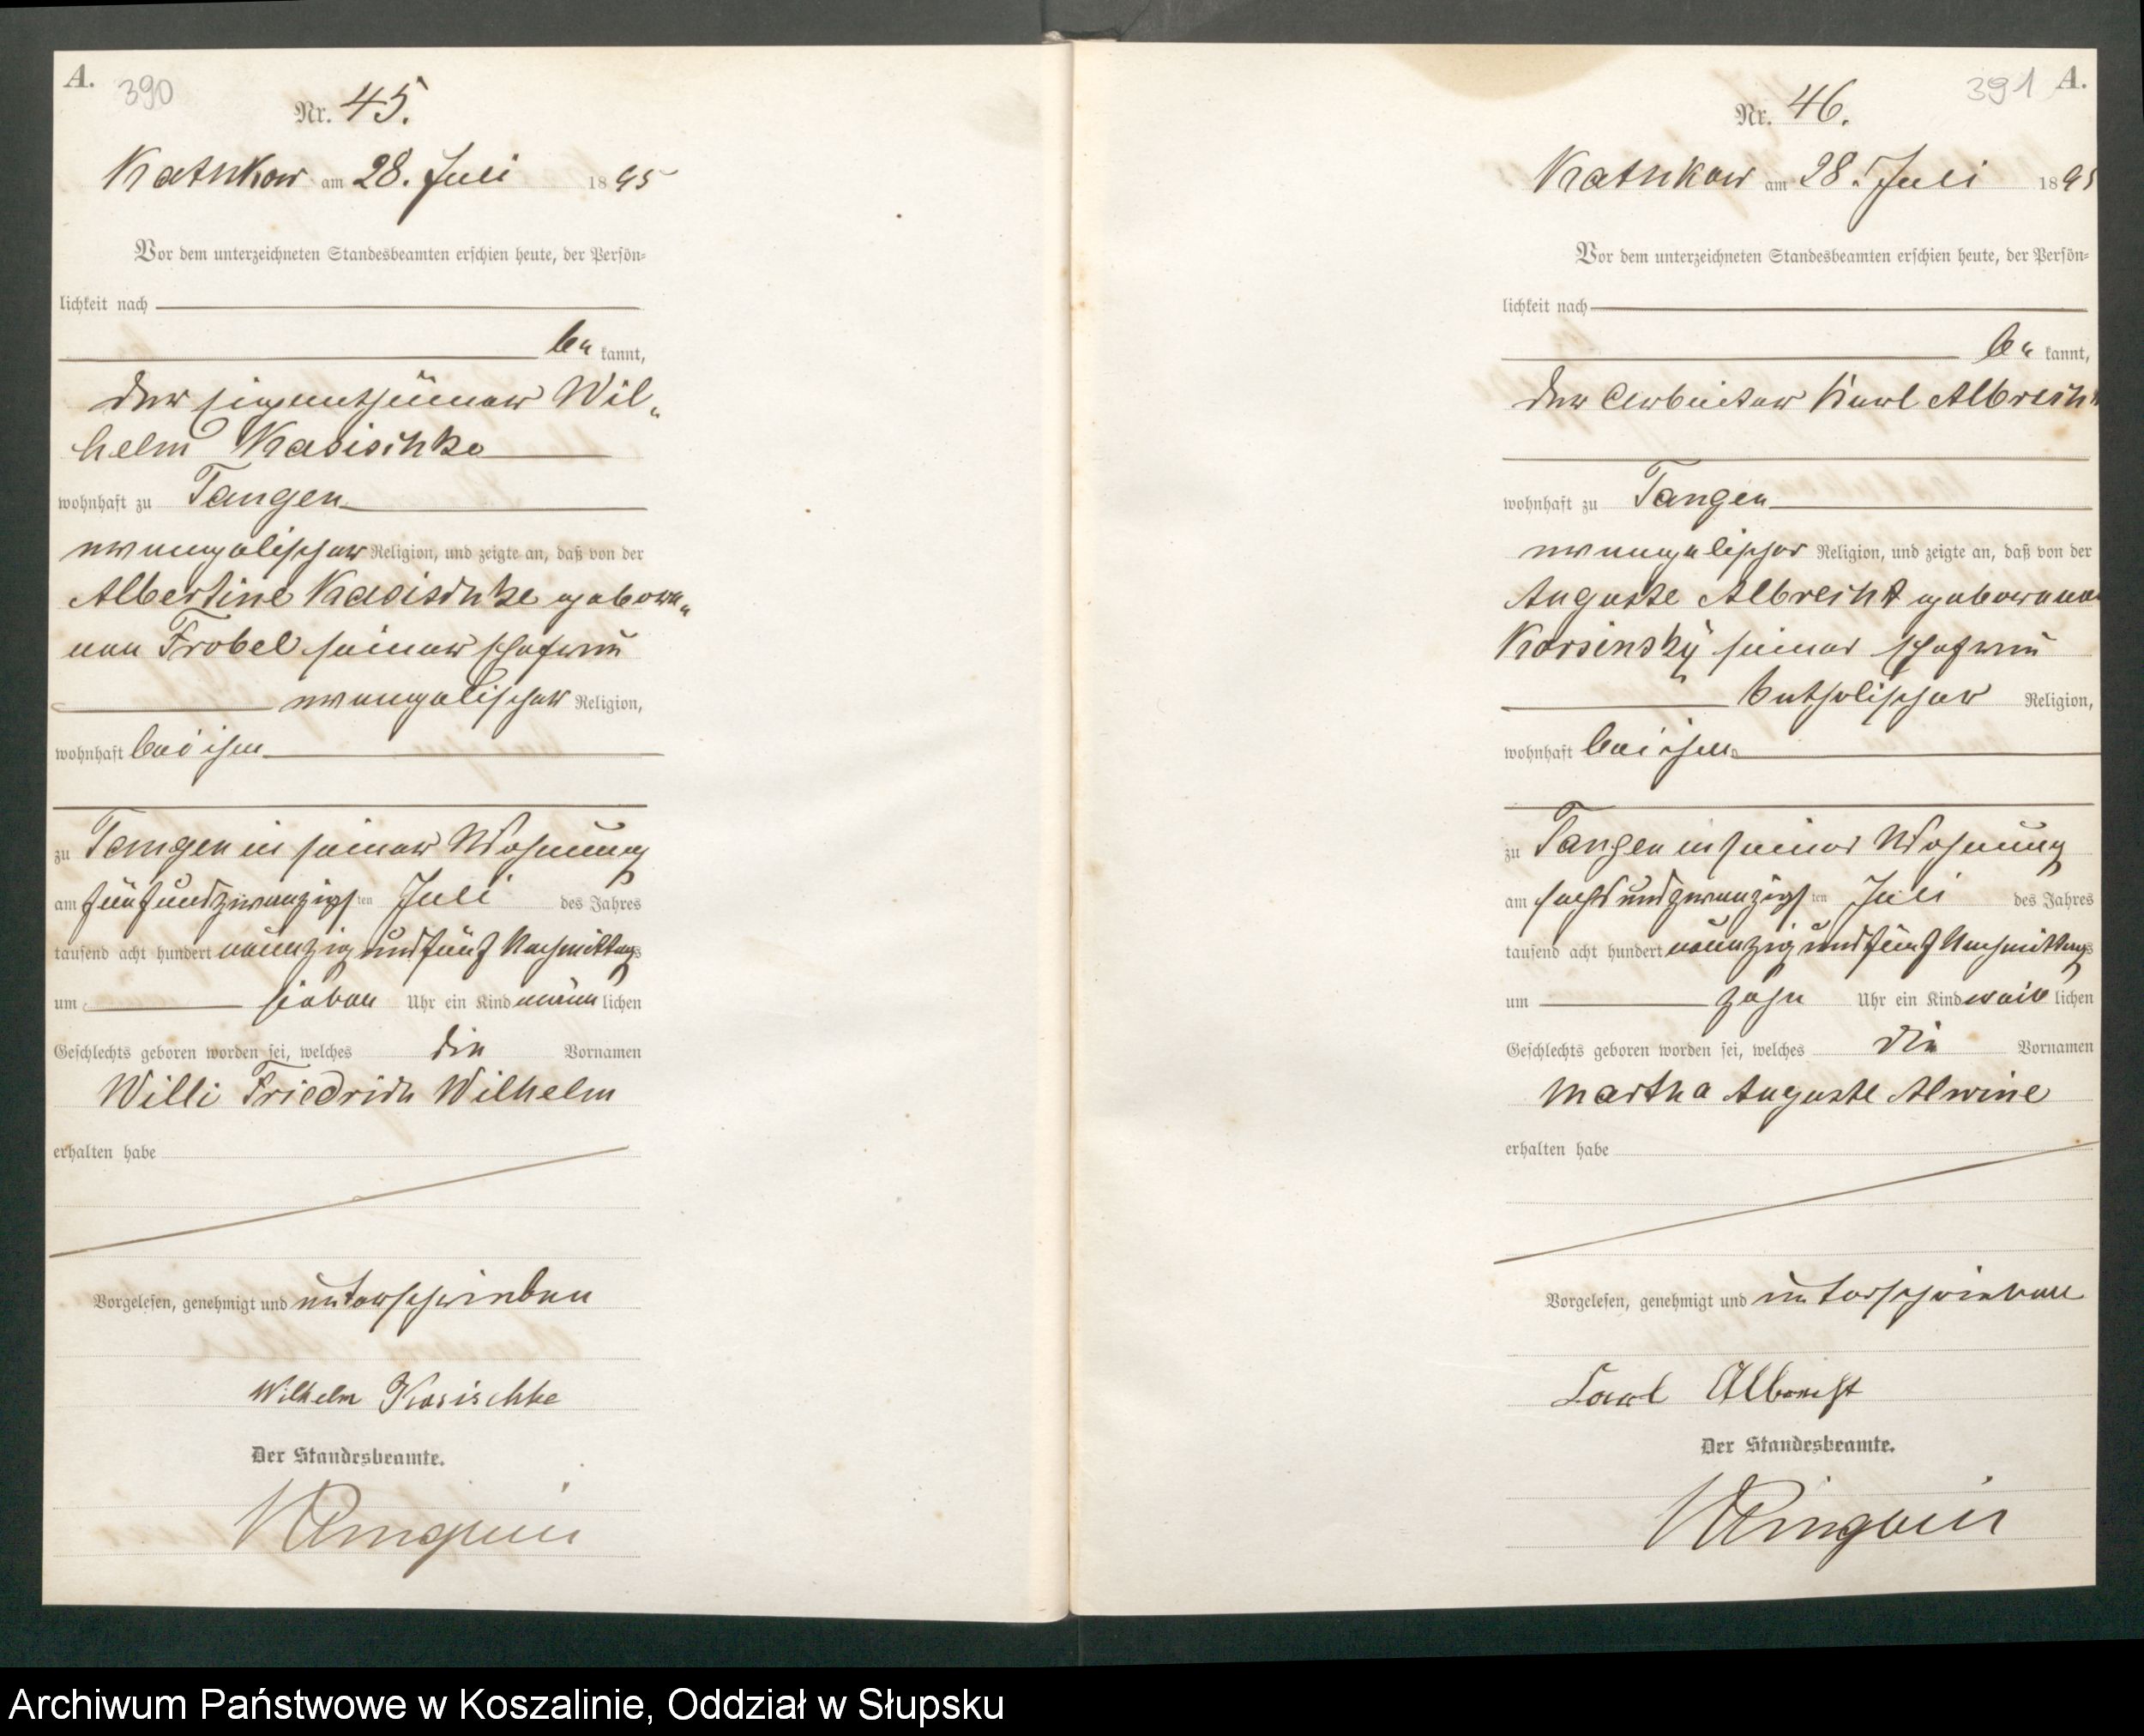 A. 390
Nr. 45.
Kathkow am 28. Juli 1895
Vor dem unterzeichneten Standesbeamten erschien heute, der Persön-
lichkeit nach
be kannt,
der Eigenthümer Wil-
helm Kasischke
wohnhaft zu Tangen
evangelischer Religion, und zeigte an, daß von der
Albertine Kasischke gebore-
nen Frobel seiner Ehefrau
evangelischer Religion,
wohnhaft bei ihm
zu Tangen in seiner Wohnung
am fünfundzwanzigsten Juli des Jahres
tausend acht hundert neunzig und fünf Nachmittags
um sieben Uhr ein Kind männlichen
Geschlechts geboren worden sei, welches die Vornamen
Willi Friedrich Wilhelm
erhalten habe
Vorgelesen, genehmigt und unterschrieben
Wilhelm Kasischke
Der Standesbeamte.
391 A.
Nr. 46.
Kathkow am 28. Juli 1895
Vor dem unterzeichneten Standesbeamten erschien heute, der Persön-
lichkeit nach
be kannt,
der Arbeiter Karl Albrecht
wohnhaft zu Tangen
evangelischer Religion, und zeigte an, daß von der
Auguste Albrecht geborenen
Korsinsky seiner Ehefrau
katholischer Religion,
wohnhaft bei ihm
zu Tangen in seiner Wohnung
am sechsundzwanzigsten Juli des Jahres
tausend acht hundert neunzig und fünf Nachmittags
um zehn Uhr ein Kind weiblichen
Geschlechts geboren worden sei, welches die Vornamen
Martha Auguste Alwine
erhalten habe
Vorgelesen, genehmigt und unterschrieben
Carl Albrecht
Der Standesbeamte.
Archiwum Państwowe w Koszalinie, Oddział w Słupsku